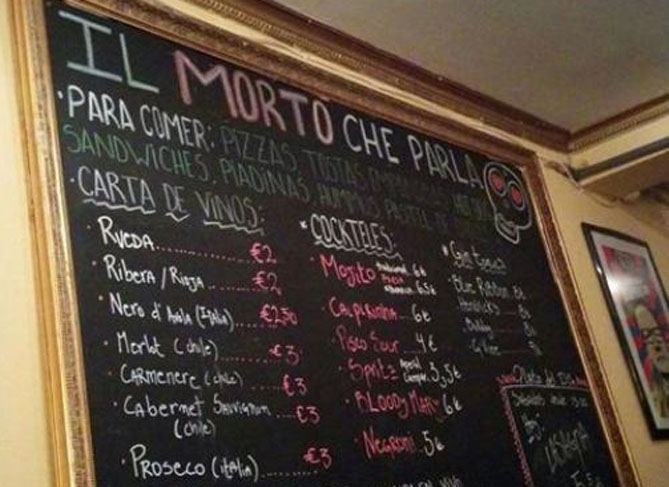 IL MORTO CHE PARLA
PARA COMER: PIZZAS, TOSTAS
SANDWICHES, PIADINAS, HUMMUS, PASTEL DE
CARTA DE VINOS:
RUEDA............ €2
Ribera/Rioja ............ €2
Nero d'Avola (Italia) ..... €2,50
Merlot (chile) ......... €3
CARMENERE (chile) ....... €3
Cabernet Sauvignon .... €3
(chile)
PROSECO (italia) ....... €3
COCKTELES:
Mojito Tradicional 6€
6.5€
CAIPIRINHA .... 6€
Pisco Sour .... 4€
Spritz Aperol 5,5€
Campari
BLOODY MARY 6€
NEGRONI. 5€
Gin Tonics
Blue Ribbon 6€
Hendrick's